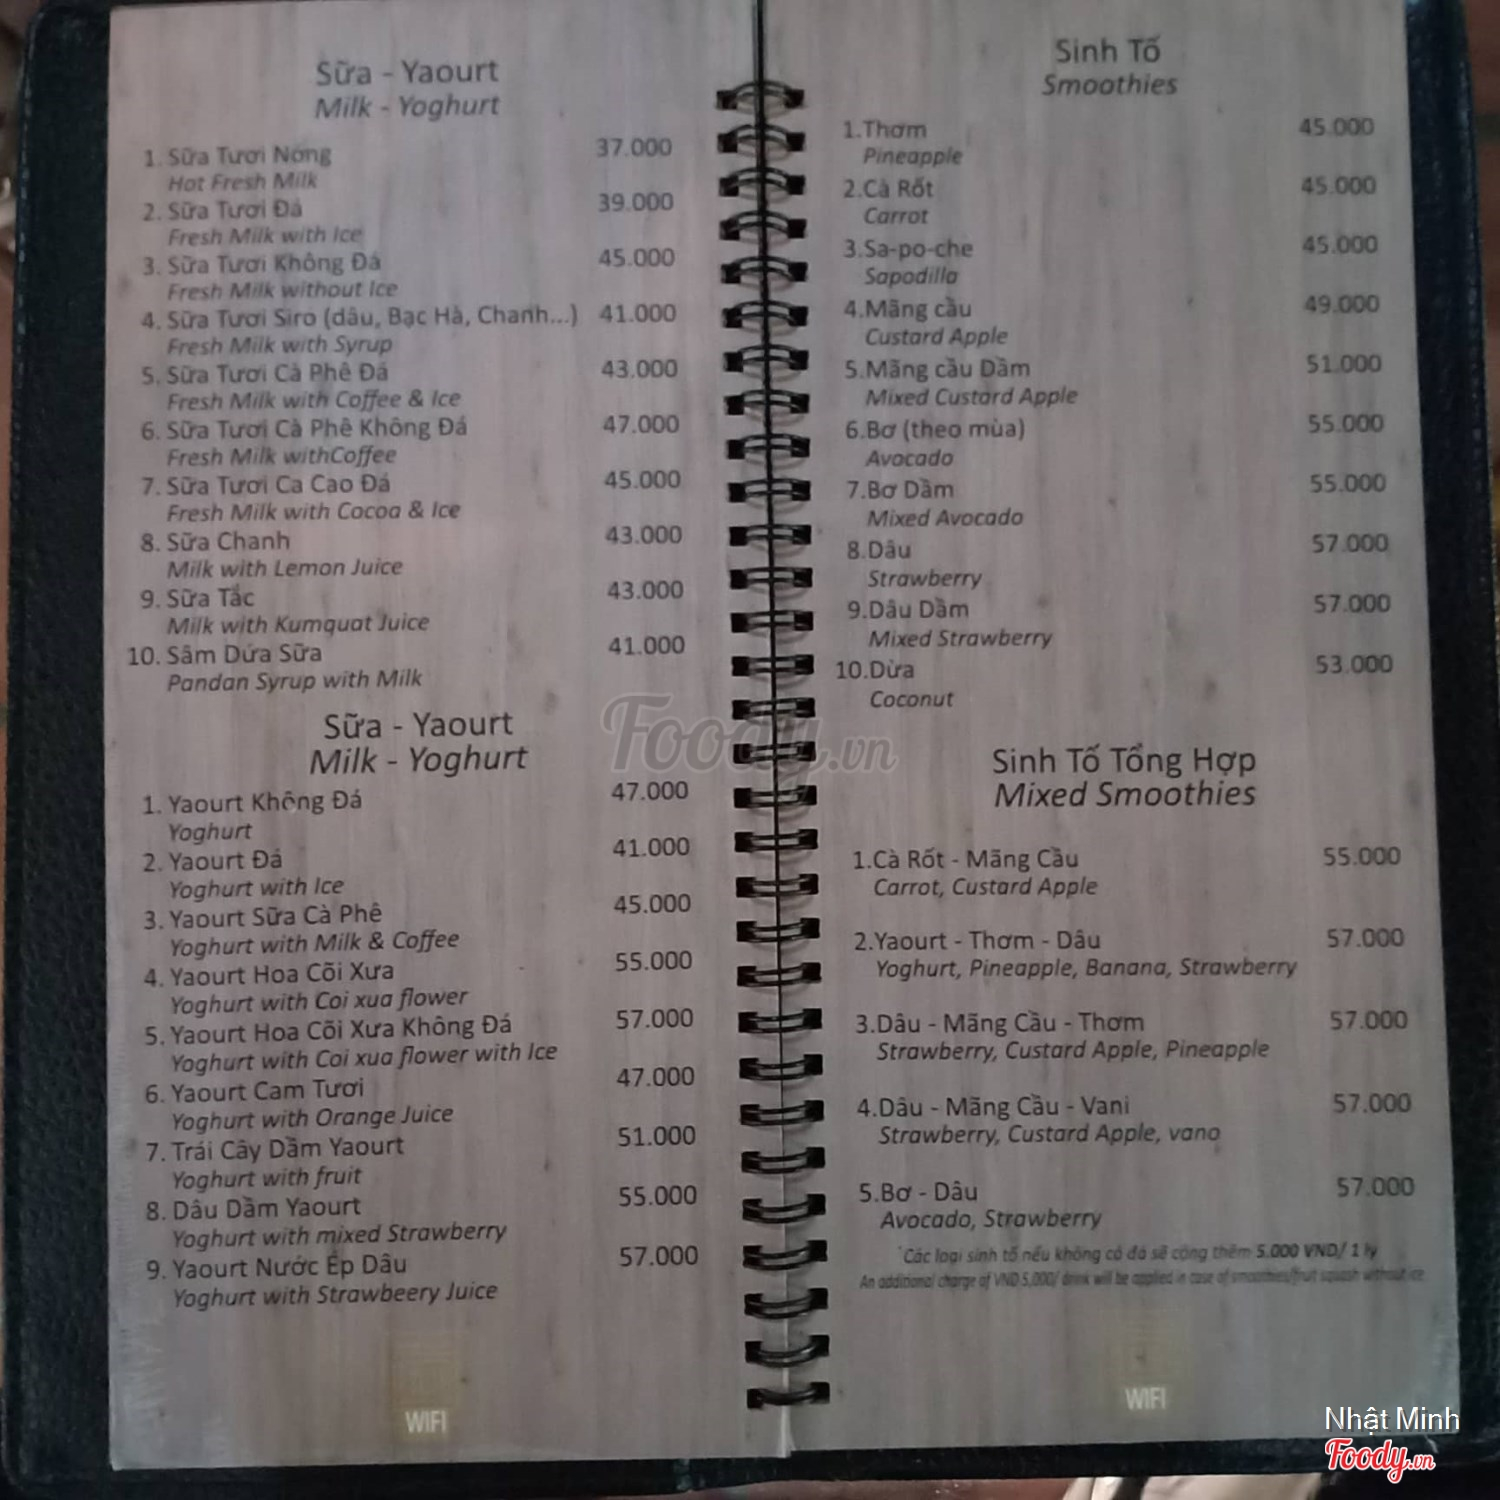 Sữa - Yaourt
Milk - Yoghurt
1. Sữa Tươi Nóng 37.000
Hot Fresh Milk
2. Sữa Tươi Đá 39.000
Fresh Milk with Ice
3. Sữa Tươi Không Đá 45.000
Fresh Milk without Ice
4. Sữa Tươi Siro (dâu, Bạc Hà, Chanh...) 41.000
Fresh Milk with Syrup
5. Sữa Tươi Cà Phê Đá 43.000
Fresh Milk with Coffee & Ice
6. Sữa Tươi Cà Phê Không Đá 47.000
Fresh Milk withCoffee
7. Sữa Tươi Ca Cao Đá 45.000
Fresh Milk with Cocoa & Ice
8. Sữa Chanh 43.000
Milk with Lemon Juice
9. Sữa Tắc 43.000
Milk with Kumquat Juice
10. Sâm Dứa Sữa 41.000
Pandan Syrup with Milk
Sữa - Yaourt
Milk - Yoghurt
1. Yaourt Không Đá 47.000
Yoghurt
2. Yaourt Đá 41.000
Yoghurt with Ice
3. Yaourt Sữa Cà Phê 45.000
Yoghurt with Milk & Coffee
4. Yaourt Hoa Cõi Xưa 55.000
Yoghurt with Coi xua flower
5. Yaourt Hoa Cõi Xưa Không Đá 57.000
Yoghurt with Coi xua flower with Ice
6. Yaourt Cam Tươi 47.000
Yoghurt with Orange Juice
7. Trái Cây Dầm Yaourt 51.000
Yoghurt with fruit
8. Dâu Dầm Yaourt 55.000
Yoghurt with mixed Strawberry
9. Yaourt Nước Ép Dâu 57.000
Yoghurt with Strawbeery Juice
WIFI
Sinh Tố
Smoothies
1.Thơm 45.000
Pineapple
2.Cà Rốt 45.000
Carrot
3.Sa-po-che 45.000
Sapodilla
4.Mãng cầu 49.000
Custard Apple
5.Mãng cầu Dầm 51.000
Mixed Custard Apple
6.Bơ (theo mùa) 55.000
Avocado
7.Bơ Dầm 55.000
Mixed Avocado
8.Dâu 57.000
Strawberry
9.Dâu Dầm 57.000
Mixed Strawberry
10.Dừa 53.000
Coconut
Sinh Tố Tổng Hợp
Mixed Smoothies
1.Cà Rốt - Mãng Cầu 55.000
Carrot, Custard Apple
2.Yaourt - Thơm - Dâu 57.000
Yoghurt, Pineapple, Banana, Strawberry
3.Dâu - Mãng Cầu - Thơm 57.000
Strawberry, Custard Apple, Pineapple
4.Dâu - Mãng Cầu - Vani 57.000
Strawberry, Custard Apple, vano
5.Bơ - Dâu 57.000
Avocado, Strawberry
*Các loại sinh tố nếu không có đá sẽ cộng thêm 5.000 VND/ 1 ly
An additional charge of VND 5,000/ drink will be applied in case of smoothies/fruit squash without ice
WIFI
Foody.vn
Nhật Minh
Foody.vn